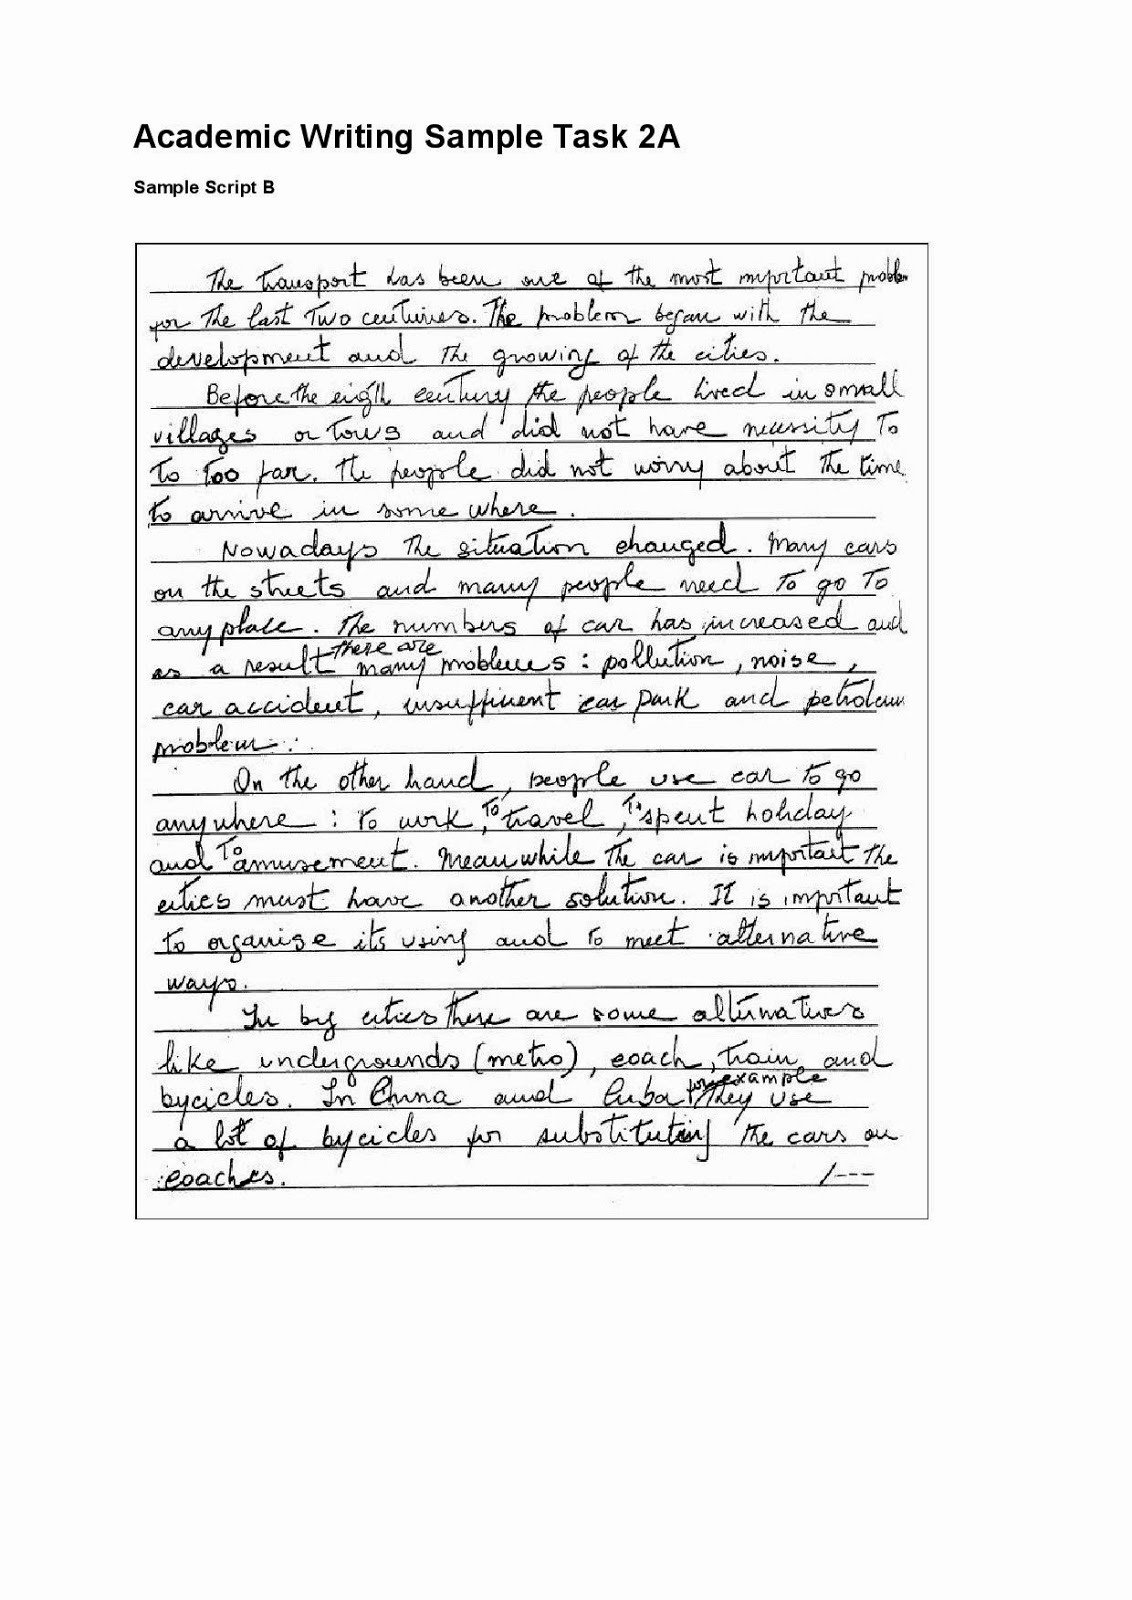 Academic Writing Sample Task 2A
Sample Script B
The transport has been one of the most important problem
for the last two centuries. The problem began with the
development and the growing of the cities.
Before the eigth century the people lived in small
villages or tows and did not have necessity to
to too far. The people did not worry about the time
to arrive in some where.
Nowadays the situation changed. Many cars
on the streets and many people need to go to
any place. The numbers of car has increased and
as a result there are many problems: pollution, noise,
car accident, insufficient car park and petroleum
problem.
On the other hand, people use car to go
anywhere: to work, to travel, to spent holiday
and to amusement. Meanwhile the car is important the
cities must have another solution. It is important
to organise its using and to meet alternative
ways.
In big cities there are some alternatives
like undergrounds (metro), coach, train and
bycicles. In China and Cuba for example they use
a lot of bycicles for substituting the cars ou
coaches.
/---